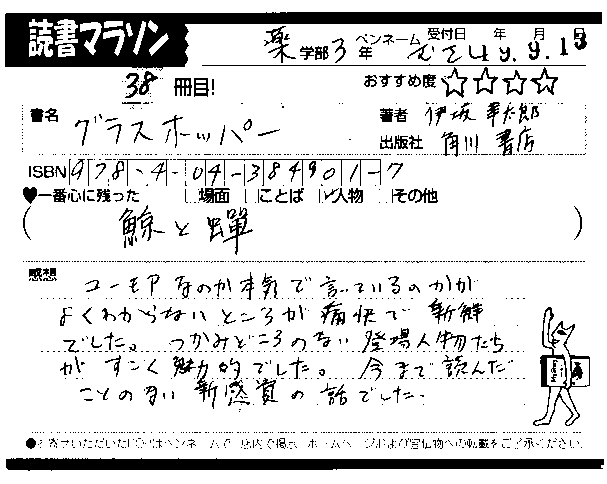 読書マラソン
薬 学部 3 年 ペンネーム むさし 受付日 年 月 日 9. 9. 13
38 冊目! おすすめ度 ☆☆☆☆
書名 グラスホッパー 著者 伊坂 幸太郎
出版社 角川 書店
ISBN 978-4-04-384901-7
♥一番心に残った 場面 ことば ✓人物 その他
(鯨と蝉)
感想
ユーモアなのか本気で言っているのかが
よくわからないところが痛快で新鮮
でした。つかみどころのない登場人物たち
がすごく魅力的でした。今まで読んだ
ことのない新感覚の話でした。
●お寄せいただいたPOPはペンネームで、店内で掲示、ホームページおよび宣伝物への転載をご了承ください。